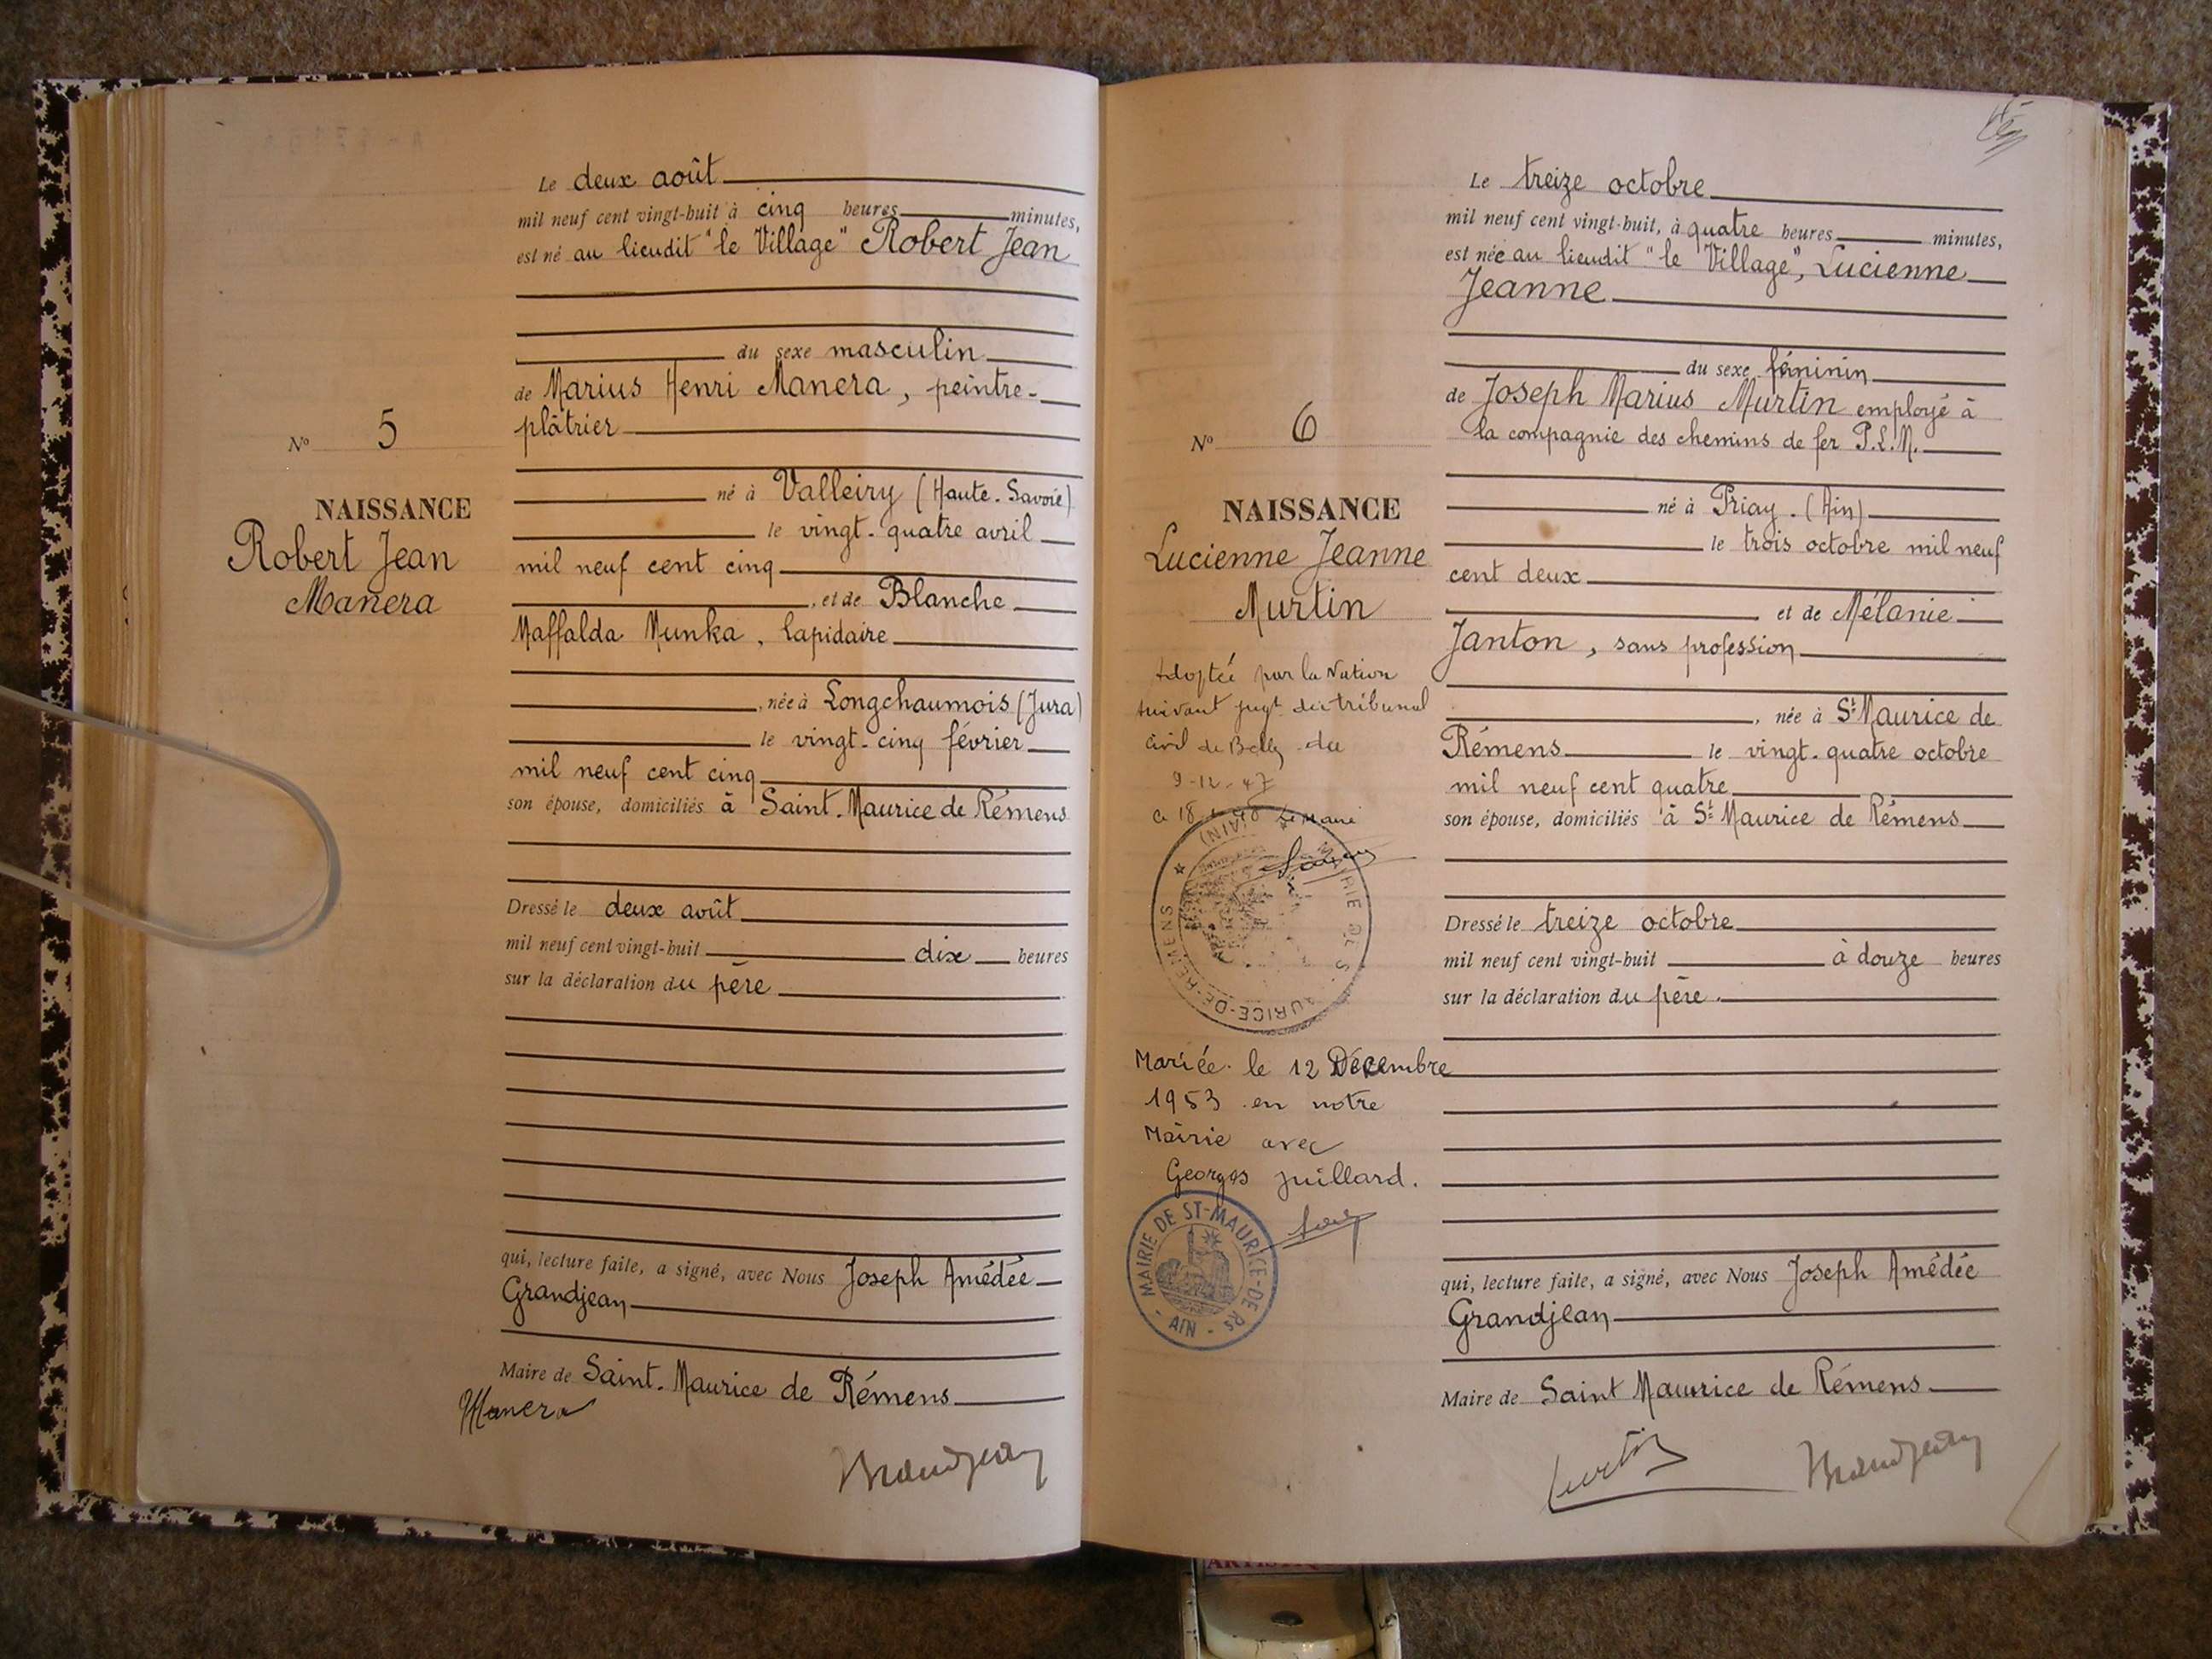 Le deux août
mil neuf cent vingt-huit à cinq heures minutes,
est né au lieudit "le Village" Robert Jean
du sexe masculin
de Marius Henri Manera, peintre-
plâtrier
né à Valleiry (Haute-Savoie)
le vingt-quatre avril
mil neuf cent cinq
, et de Blanche
Maffalda Munka, lapidaire
, née à Longchaumois (Jura)
le vingt-cinq février
mil neuf cent cinq
son épouse, domiciliés à Saint-Maurice de Rémens
Dressé le deux août
mil neuf cent vingt-huit dix heures
sur la déclaration du père
qui, lecture faite, a signé, avec Nous Joseph Amédée
Grandjean
Maire de Saint-Maurice de Rémens
Manera
Grandjean
N° 5
NAISSANCE
Robert Jean
Manera
Le treize octobre
mil neuf cent vingt-huit, à quatre heures minutes,
est née au lieudit "le Village", Lucienne
Jeanne
du sexe féminin
de Joseph Marius Murtin employé à
la compagnie des chemins de fer P.L.M.
né à Priay (Ain)
le trois octobre mil neuf
cent deux
et de Mélanie
Janton, sans profession
, née à St Maurice de
Rémens le vingt-quatre octobre
mil neuf cent quatre
son épouse, domiciliés à St Maurice de Rémens
Dressé le treize octobre
mil neuf cent vingt-huit à douze heures
sur la déclaration du père
qui, lecture faite, a signé, avec Nous Joseph Amédée
Grandjean
Maire de Saint Maurice de Rémens
Murtin
Grandjean
N° 6
NAISSANCE
Lucienne Jeanne
Murtin
Adoptée par la Nation
suivant jugt du tribunal
civil de Belley du
9-12-47
le Maire
Mariée le 12 Décembre
1953 en notre
Mairie avec
Georges Juillard.
MAIRIE DE ST-MAURICE-DE-Rs
- AIN -